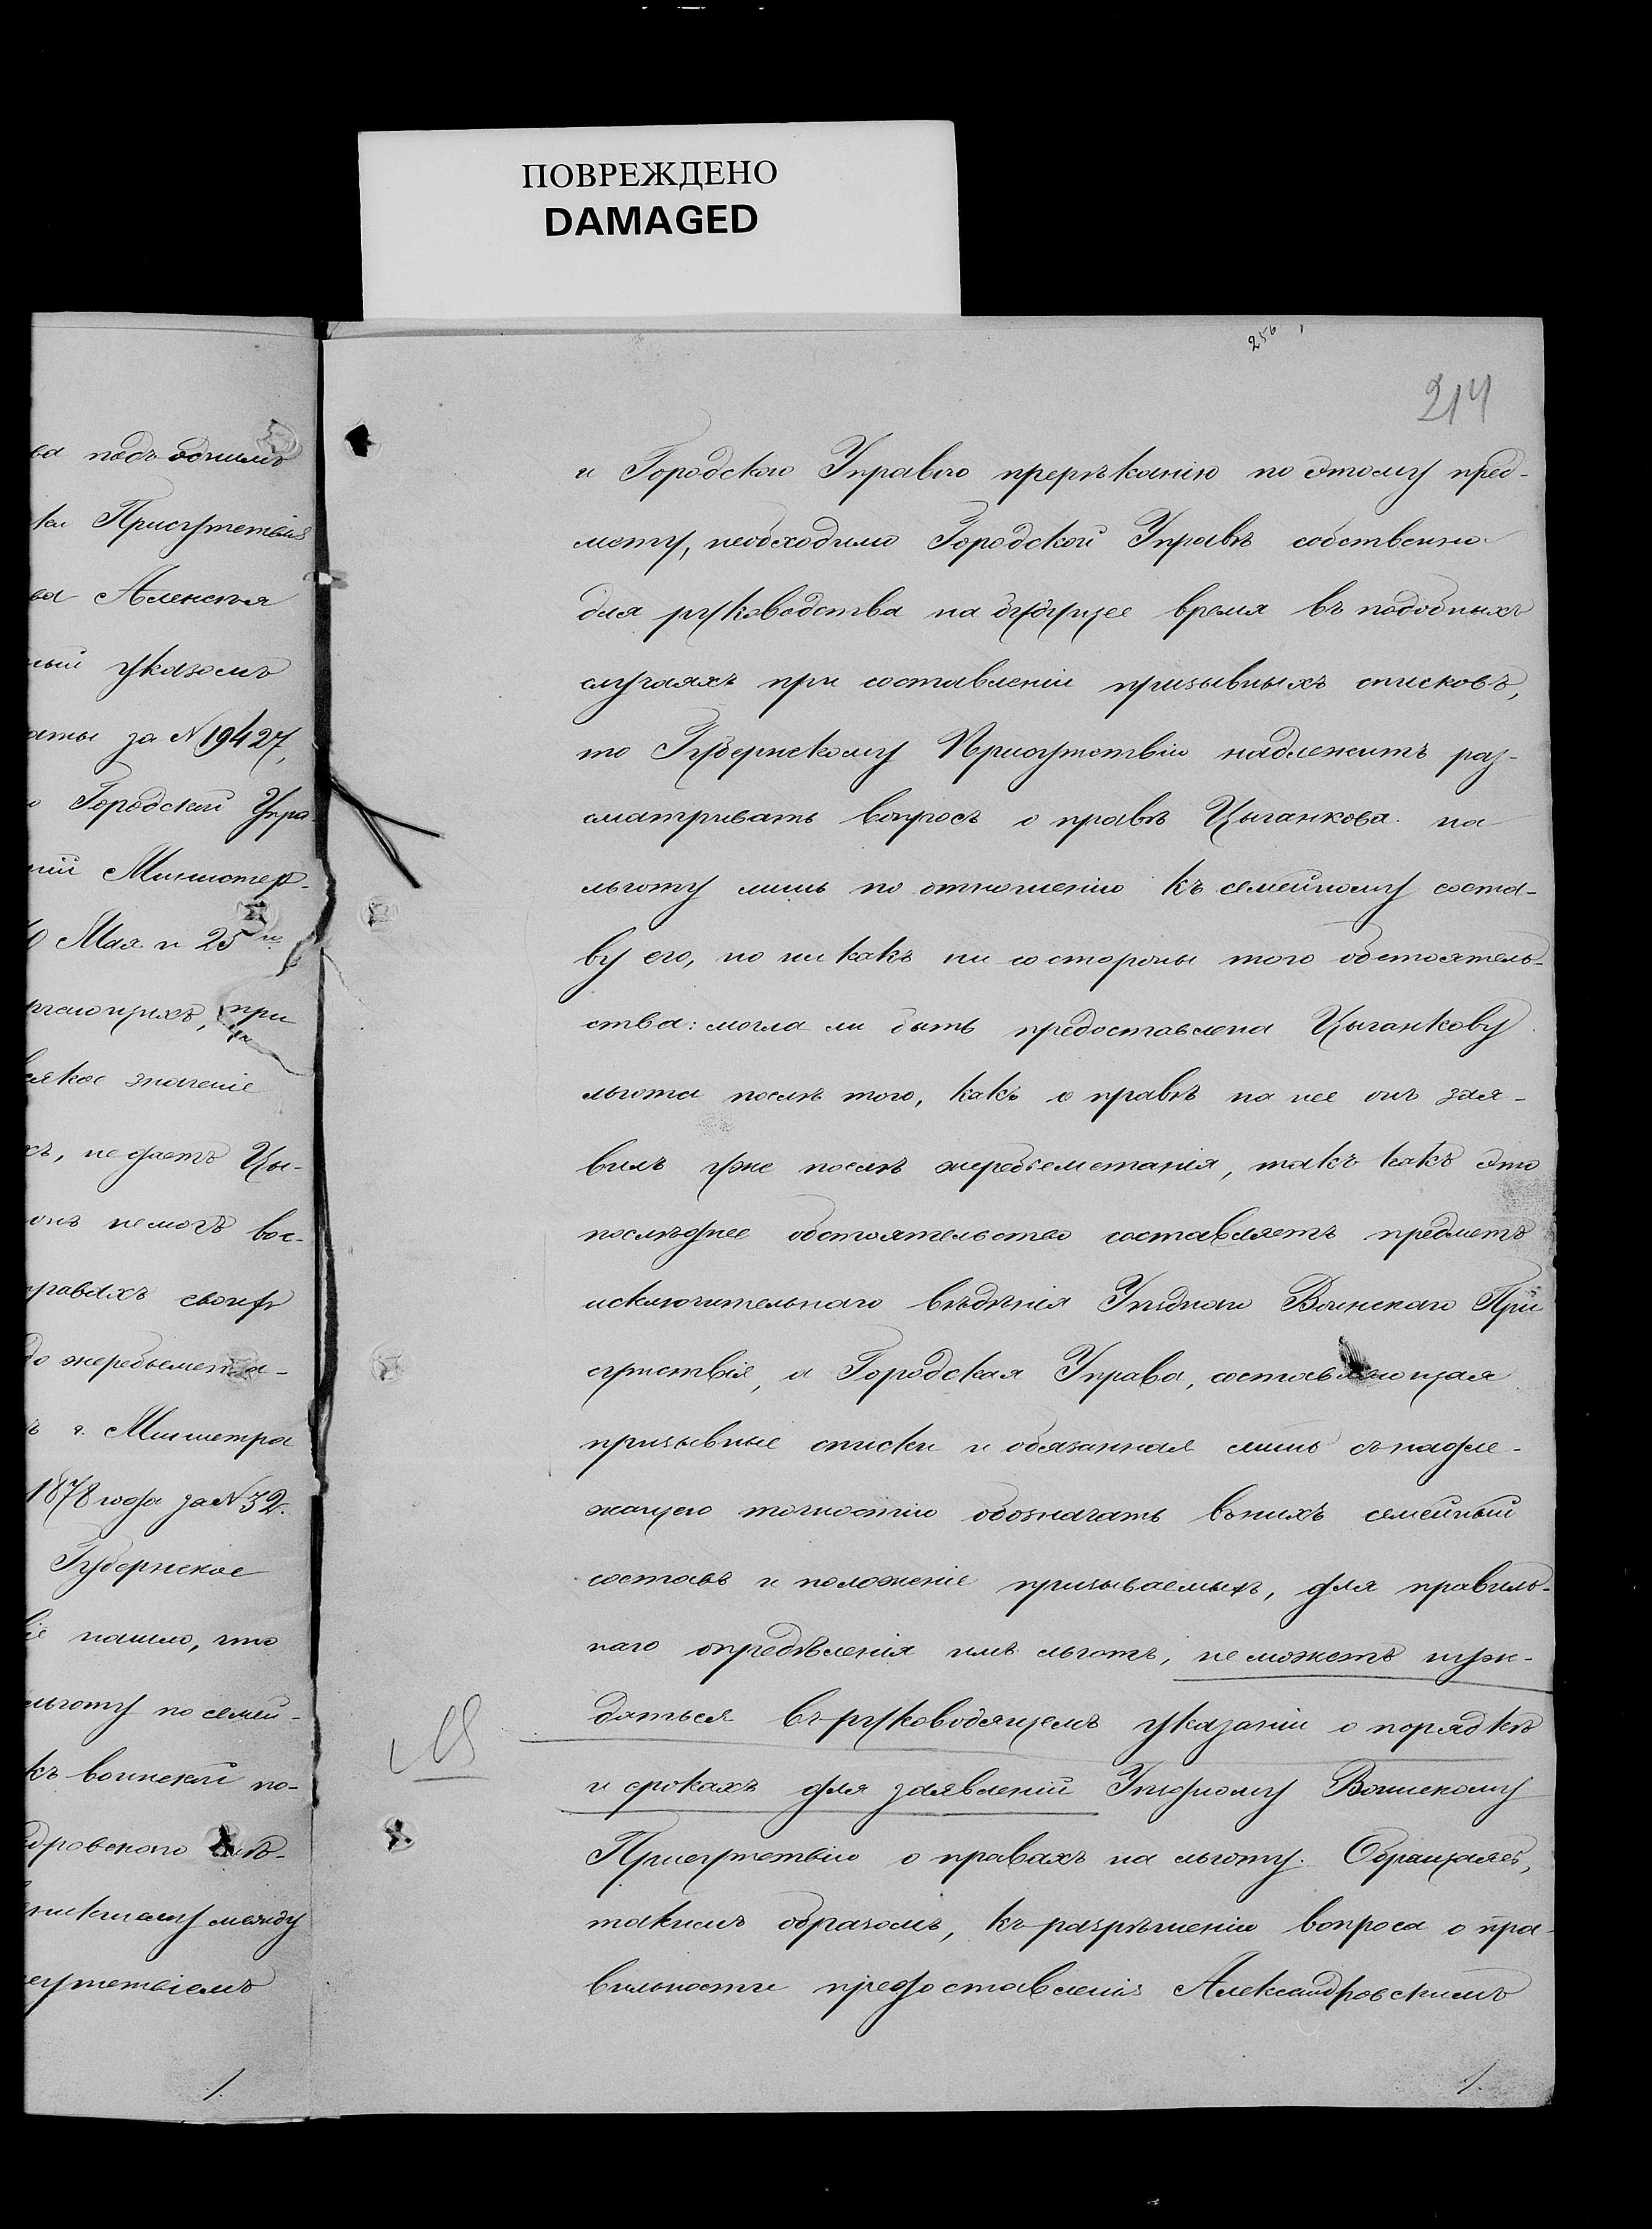 ПОВРЕЖДЕНО
DAMAGED
ва подъ однимъ
ка Присутствія
ва Алексѣя
ный указомъ
аты за N 19427,
о Городской Упра-
ній Министер-
10 Мая и 25го
ргающихъ, при
всякое значеніе
хъ, не даетъ Цы-
онъ не могъ вос-
правахъ своихъ
до жеребьемета-
ъ г. Министра
1878 года за N 32.
Губернское
віе нашло, что
льготу по семей-
къ воинской по-
дровскаго Уѣз-
зникшему между
сутствіемъ
1.
256
214
и Городскою Управою пререканію по этому пред-
мету, необходимо Городской Управѣ собственно
для руководства на будущее время въ подобныхъ
случаяхъ при составленіи призывныхъ списковъ,
то Губернскому Присутствію надлежитъ раз-
сматривать вопросъ о правѣ Цыганкова на
льготу лишь по отношенію къ семейному соста-
ву его, но ни какъ ни со стороны того обстоятель-
ства: могла ли быть предоставлена Цыганкову
льгота послѣ того, какъ о правѣ на нее онъ зая-
вилъ уже послѣ жеребьеметанія, такъ какъ это
послѣднее обстоятельство составляетъ предметъ
исключительнаго вѣдѣнія Уѣзднаго Воинскаго При
сутствія, а Городская Управа, составляющая
призывные списки и обязанная лишь съ надле-
жащею точностію обозначать въ нихъ семейный
составъ и положеніе призываемыхъ, для правиль-
наго опредѣленія имъ льготъ, не можетъ нуж-
даться въ руководящемъ указаніи о порядкѣ
NB
и срокахъ для заявленій Уѣздному Воинскому
Присутствію о правахъ на льготу. Обращаясь,
такимъ образомъ, къ разрѣшенію вопроса о пра-
вильности предоставленія Александровскимъ
1.